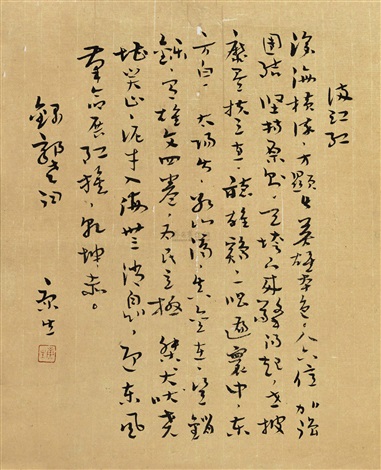 满江红
沧海横流，方显出英雄本色。人六亿，加强
团结，坚持原则。天垮下来擎得起，世披
靡矣扶之直。听雄鸡一唱遍寰中，东
方白。太阳出，冰山滴，真金在，岂销
铄，有雄文四卷，为民立极。桀犬吠尧
堪笑止，泥牛入海无消息，迎东风
革命展红旗，乾坤赤。
录郭老词